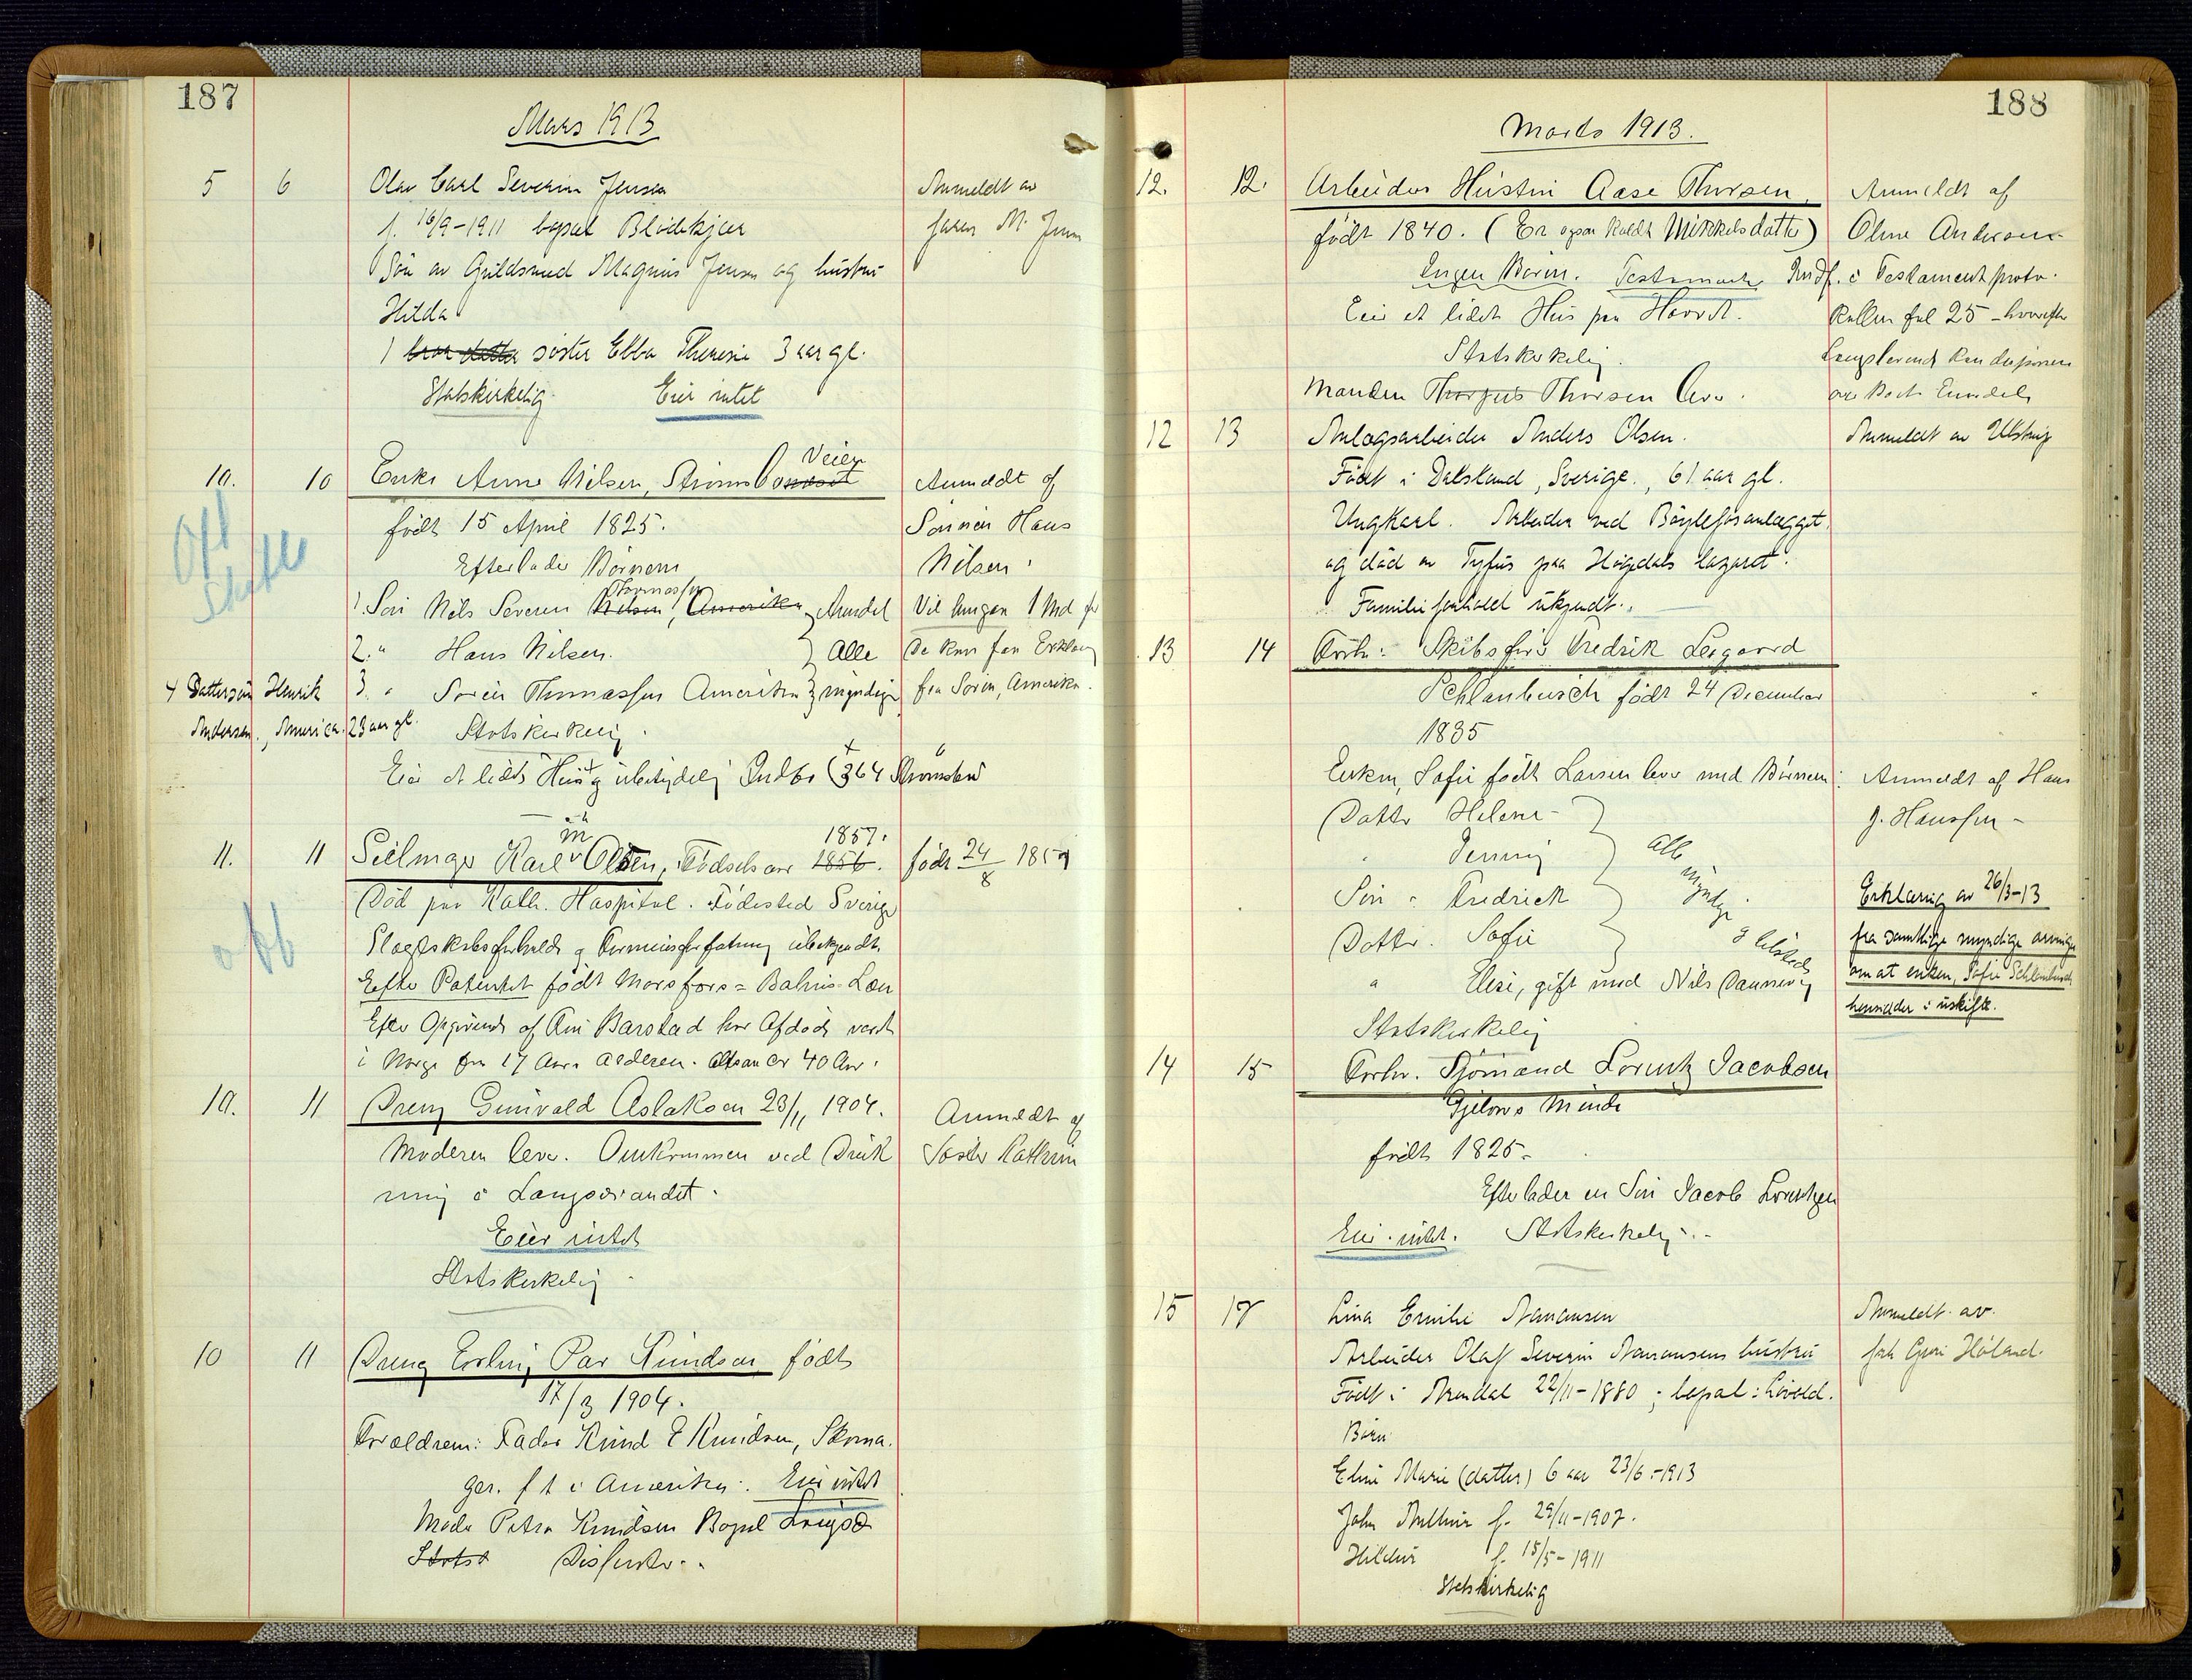 187
Mars 1913
5 6 Olav Carl Severin Jensen
f. 16/9-1911 bopæl Blødekjær
Søn av Guldsmed Magnus Jensen og hustru
Hilda
1 søster Ebba Theresie 3 aar gl.
Statskirkelig Eier intet
Anmeldt av
faren M. Jensen
10. 10 Enke Anne Nilsen, Strømsbo Veien
født 15 April 1825.
Efterlader Børnene
1. Søn Nils Severin Nilsen Thomassen, Amerika Arendal
2. " Hans Nilsen. Alle
3. " Søren Thomassen Amerika myndige
4 Dattersøn Henrik
Andersen, America. 23 aar gl.
Statskirkelig.
Eier et lidet Hus og ubetydelig Indbo (364 Strømsbo
Anmeldt af
Sønnen Hans
Nilsen.
Vil have 1 Md før
De kan faa Erklæring
fra Søren, Amerika.
Off
Skifte
11. 11 Seilmager Karl Olsen, Fødselsaar 1856. 1857.
født 24/8 1857
Død paa Kath. Hospital. Fødested Sverige
Slægtskabsforhold og Formuesforfatning ubekjendt.
Efter Patentet født Morsfors = Bahus Læn
Efter Opgivende af Barstad har Afdøde været
i Norge fra 17 Aars Alderen. altsaa er 40 Aar.
10. 11 Dreng Gunvald Aslaksen 23/11 1904.
Moderen lever. Omkommen ved Druk
ning i Langsævandet.
Eier intet
Statskirkelig
Anmeldt af
Søster Kathrin
10 11 Dreng Erling Knudsen født
17/3 1904.
Forældrene: Fader Knud E Knudsen, Skoma.
ger. f t i Amerika. Eier intet
Moder Petra Knudsen Bopæl Langsæ
Statsk Dissenter.
188
Marts 1913.
12. 12. Arbeider Hustru Aase Thorsen,
født 1840. (Er ogsaa kaldt Mikkelsdatter)
Ingen Børn. Testamente Indf. i Testamentproto.
Eier et lidet Hus paa Havst.
Statskirkelig.
Manden Thorsen lever.
Anmeldt af
Oline Andersen
kollen fol 25 - hvorefter
Længstlevende kan disponere
over Boets Eiendele
12 13 Anlægsarbeider Anders Olsen.
Født i Dalsland, Sverige., 61 aar gl.
Ungkarl. Arbeider ved Bøylefosanlægget,
og død av Tyfus paa Høgedals lazaret.
Familieforhold ukjendt.
Anmeldt av Ulstrup
13 14 Forhv: Skibsfører Fredrik Leegaard
Schlanbusch født 24 December
1835
Enken, Sofie født Larsen lever med Børnene:
Datter Helene
" Jenny
Søn: Fredrick
Datter. Sofie
" Elise, gift med Nils Dannevig
Alle myndige og tilstede
Statskirkelig
Anmeldt af Hans
J. Hanssen
Erklæring av 26/3-13
fra samtlige myndige arvinge
om at enken, Sofie Schlanbusch
hensidder i uskifte.
14 15 Forhv. Sjømand Lorentz Jacobsen
Gjeløws Minde
født 1825.
Efterlader en Søn Jacob Lorentzen
Eier intet. Statskirkelig.
15 17 Lina Emilie Aanansen
Arbeider Olaf Severin Aanansens hustru
Født i Arendal 22/11-1880; bopæl: Løvold.
Børn
Eline Marie (datter) 6 aar 23/6-1913
John Arthur f. 29/11-1907.
Hildur f. 15/5-1911
Statskirkelig
Anmeldt av
frk Guri Høland.